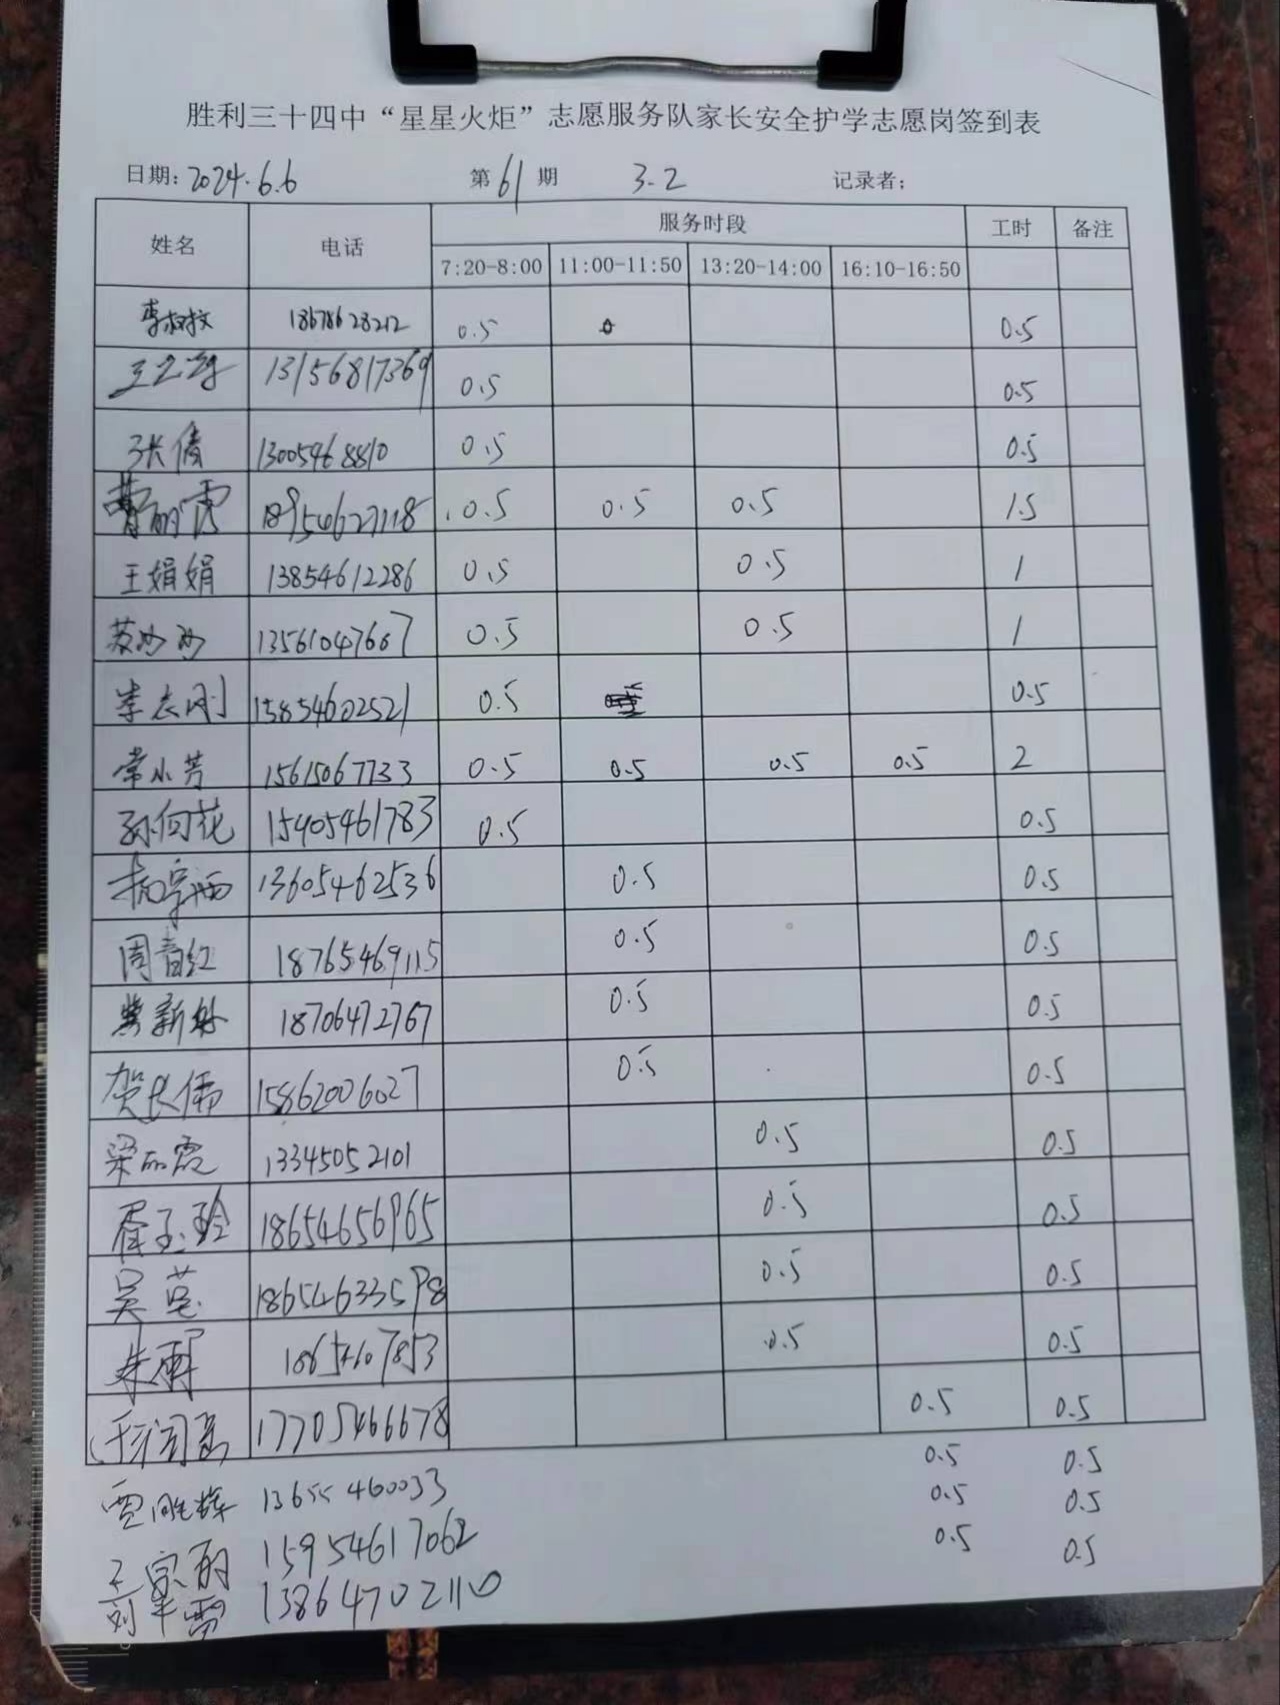 胜利三十四中“星星火炬”志愿服务队家长安全护学志愿岗签到表
日期: 2024.6.6 第 61 期 3.2 记录者:
姓名 电话 服务时段 工时 备注
7:20-8:00 11:00-11:50 13:20-14:00 16:10-16:50
18678628212 0.5 0.5
13156817369 0.5 0.5
张倩 13005468810 0.5 0.5
曹丽霞 18954627118 0.5 0.5 0.5 1.5
王娟娟 13854612286 0.5 0.5 1
苏 13561047667 0.5 0.5 1
李志刚 15854602521 0.5 0.5
常小芳 15615067733 0.5 0.5 0.5 0.5 2
孙向花 15405461783 0.5 0.5
13605462536 0.5 0.5
周青红 18765469115 0.5 0.5
18706472767 0.5 0.5
贺长伟 15862006027 0.5 0.5
梁丽霞 13345052101 0.5 0.5
翟玉玲 18654656965 0.5 0.5
吴莹 18654633598 0.5 0.5
朱雨 0.5 0.5
17705466678 0.5 0.5
贾胜辉 13655460033 0.5 0.5
王 丽 15954617062 0.5 0.5
刘 雪 13864702110 0.5 0.5